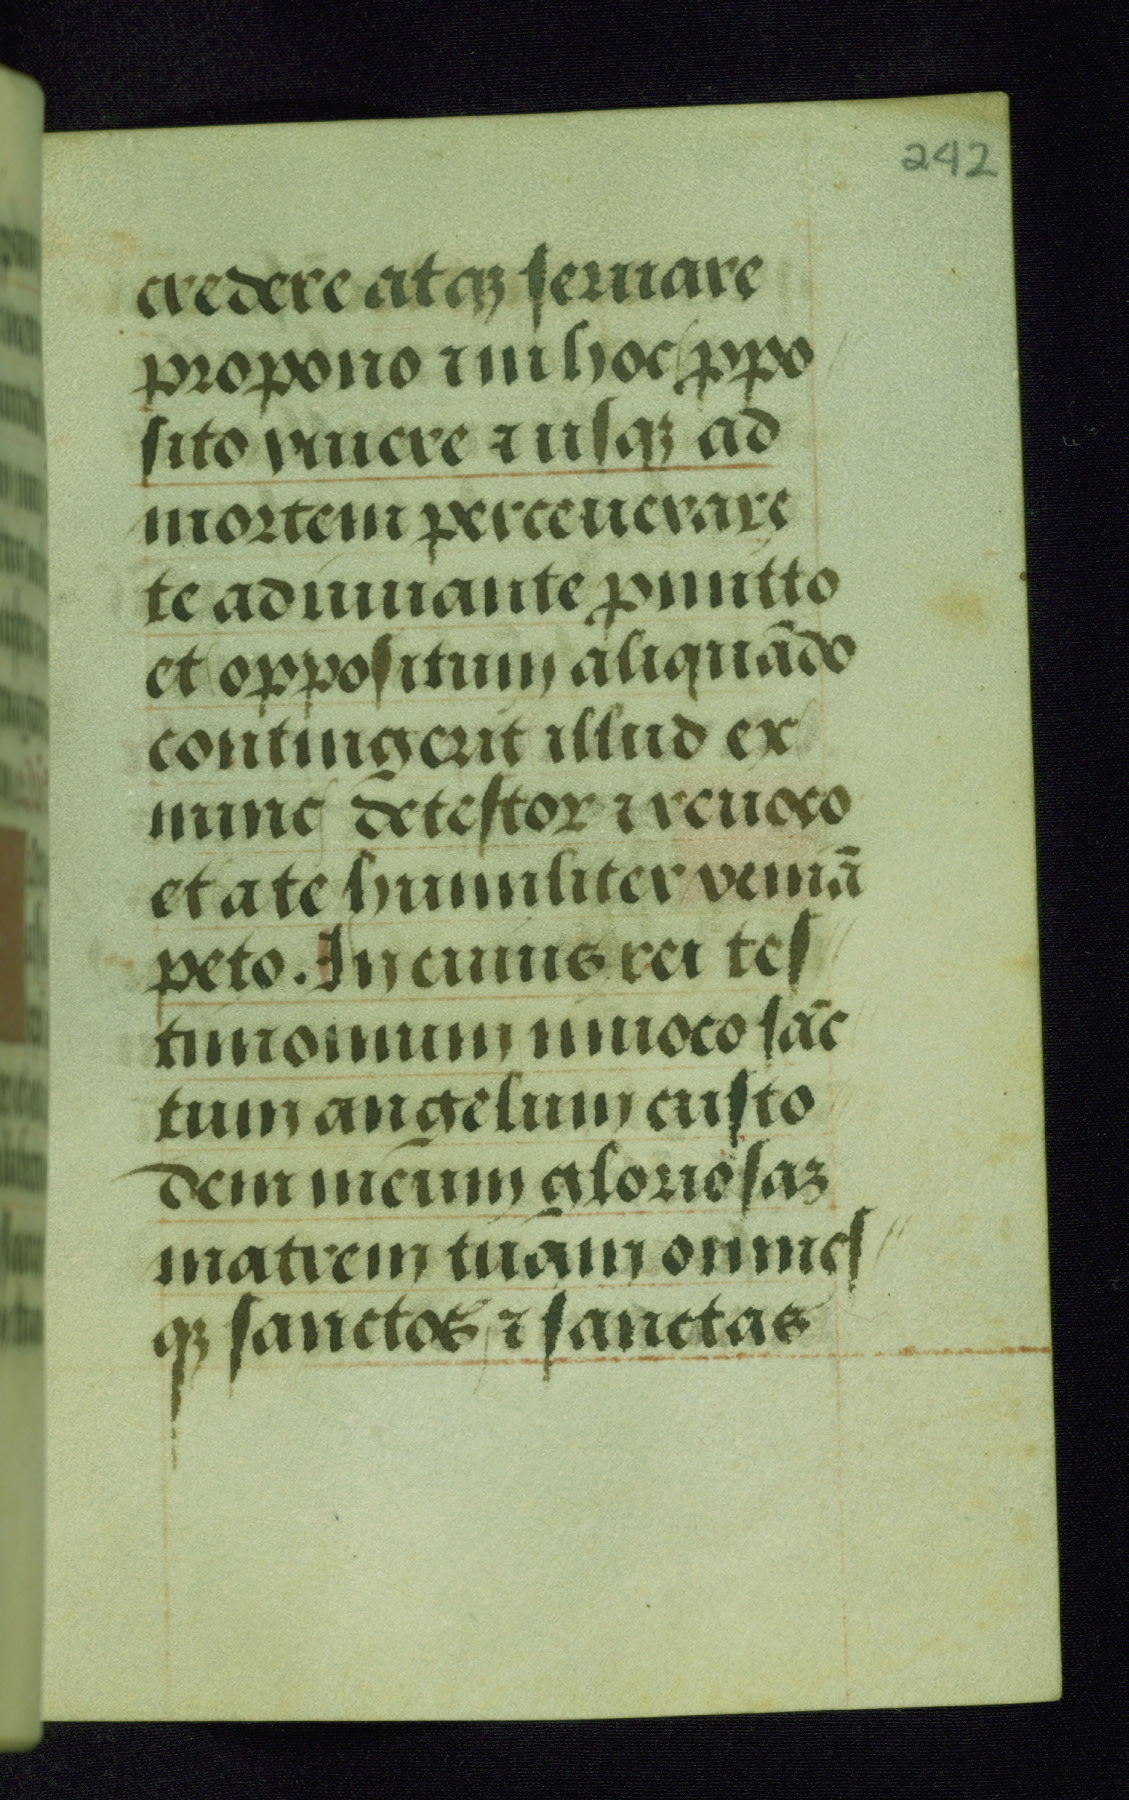 242
credere atqꝫ seruare
propono ⁊ in hoc ꝓpo
sito viuere ⁊ usqꝫ ad
mortem perceuerare
te adiuuante ꝓmitto
et oppositum aliquādo
contingerit illud ex
nunc detestor ⁊ reuoco
et a te humiliter veniā
peto. In cuius rei tes
timonium inuoco sāc
tum angelum custo
dem meum gloriosaꝫ
matrem tuam omnes
qꝫ sanctos ⁊ sanctas